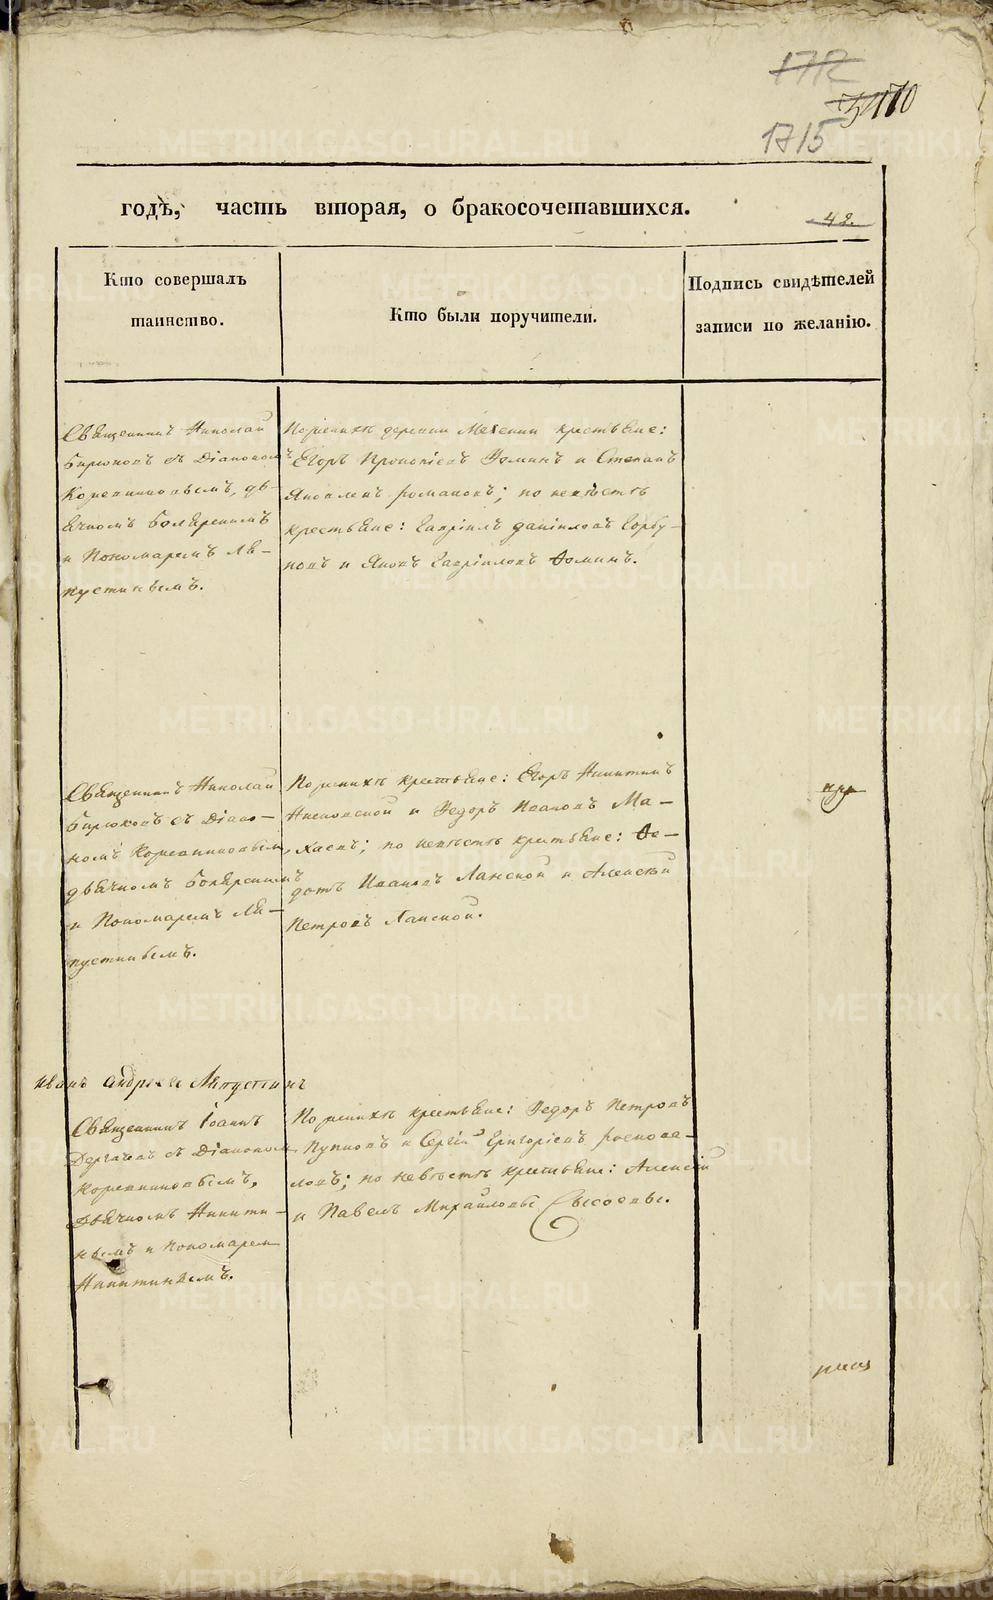 1712
1715
годѣ, часть вторая, о бракосочетавшихся.
42.
Кто совершалъ
таинство.
Кто были поручители.
Подпись свидѣтелей
записи по желанію.
Священникъ Николай
Бирюковъ съ Діакономъ
Коровинковымъ, дь-
ячкомъ Боярскимъ
и Пономаремъ Ля-
пустинымъ.
По женихѣ деревни крестьяне:
Егоръ Прокопіевъ Ѳоминъ и Степанъ
Яковлевъ Романовъ; по невѣстѣ
крестьяне: Гавріилъ Даніиловъ Горбу-
новъ и Яковъ Гавріиловъ Ѳоминъ.
Священникъ Николай
Бирюковъ съ Діако-
номъ
дьячкомъ Боярскимъ
и Пономаремъ Ля-
пустинымъ.
По женихѣ крестьяне: Егоръ Никитинъ
и Ѳедоръ Ивановъ Ма-
; по невѣстѣ крестьяне: Ѳе-
дотъ Ивановъ Ланской и Алексѣй
Петровъ Ланской.
Иванъ Андреевъ Ляпустинъ
Священникъ Іоаннъ
Дергачевъ съ Діакономъ
Дьячкомъ Никити-
нымъ и Пономаремъ
Никитинымъ.
По женихѣ крестьяне: Ѳедоръ Петровъ
и Сергій Григоріевъ
; по невѣстѣ крестьяне: Алексій
и Павелъ Михайловы Сысоевы.